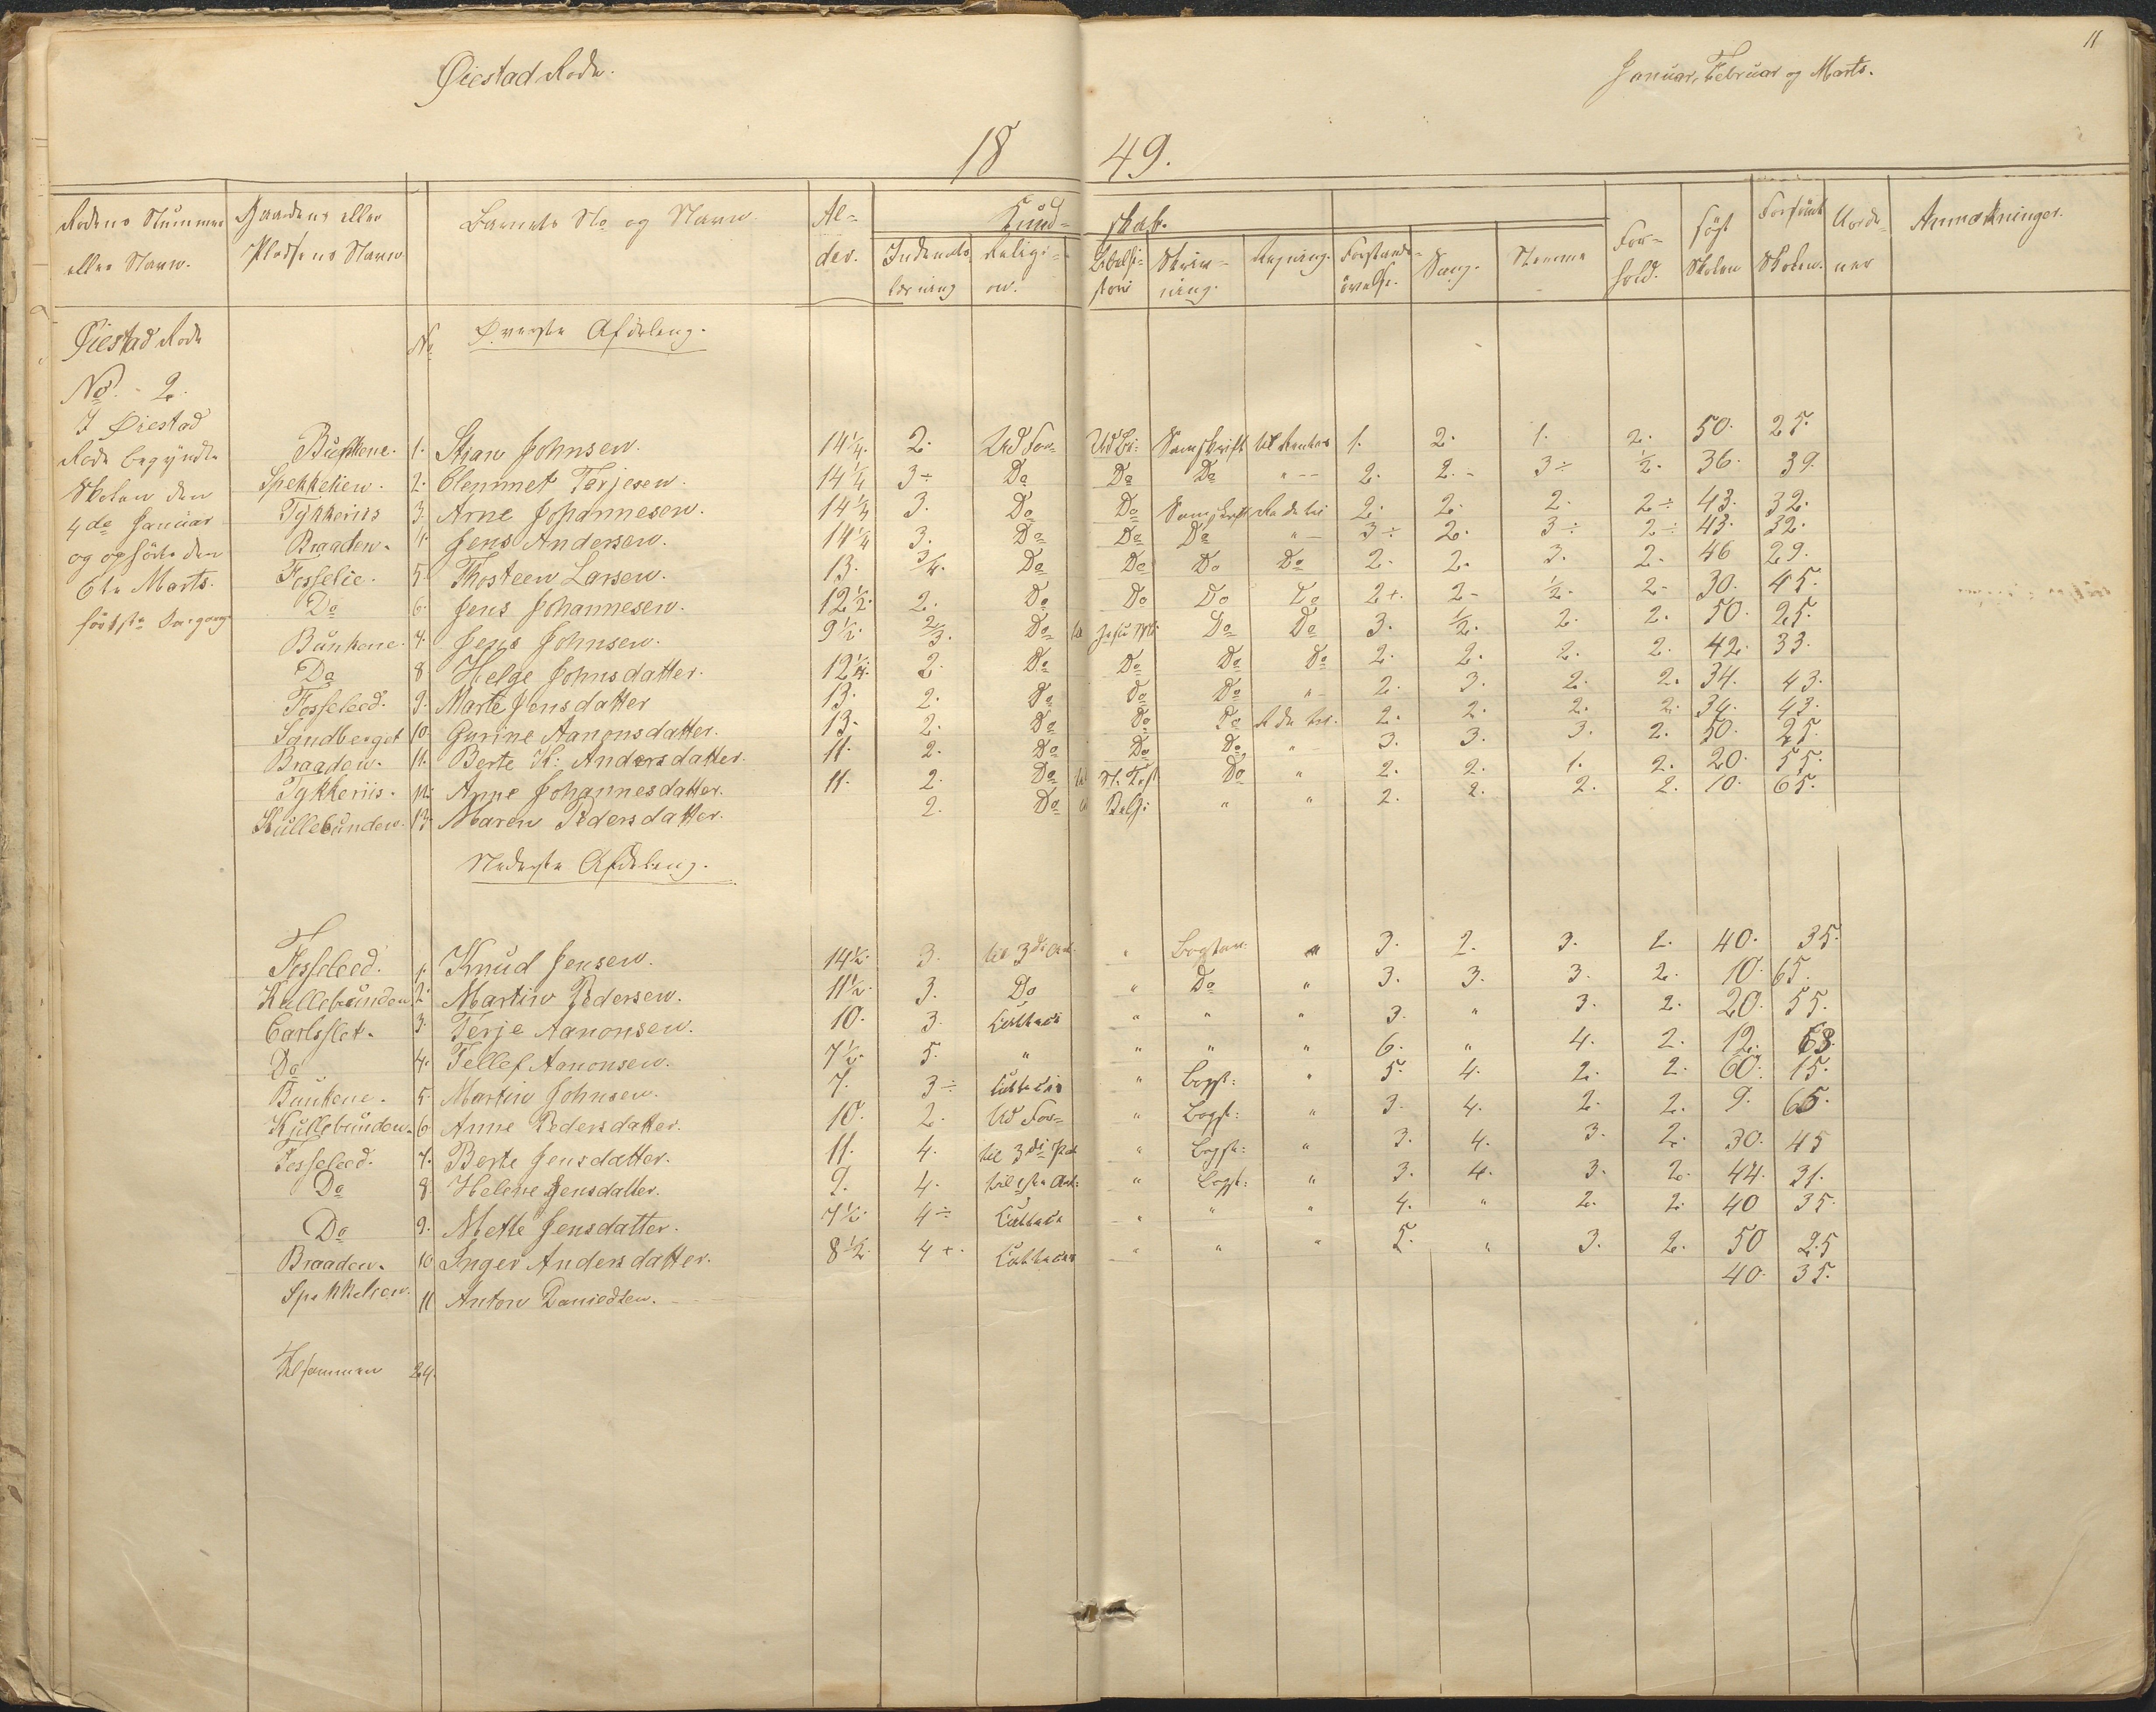 11
Øiestad Rode.
Januar, Februar og Marts.
1849.
Rodens Nummer eller Navn. Gaardens eller Pladsens Navn Barnets No og Navn. Alder. Kundskab. Forhold. søgt Skolen Forsømt Skolen. Anmærkninger.
Indenadslæsning Religion. Bibelhistorie Skrivning. Regning. Forstandsøvelse. Sang. Stemme
Øiestad Rode
No. 2.
I Øiestad
Rode begyndte
Skolen den
4de Januar
og ophørte den
6te Marts.
første Omgang
No Øverste Afdeling.
Buskene. 1. Stian Johnsen. 14¼. 2. Ud For- Ud Bi: Samskrift 1. 2. 1. 2. 50. 25.
Spekkelien. 2. Clemmet Terjesen. 14¼ 3÷ Do Do Do " 2. 2. 3÷ ½. 36. 39.
Tykkeriis 3. Arne Johannesen. 14¼ 3. Do Do Samskrift 2. 2. 2. 2÷ 43. 32.
Braaden. 4. Jens Andersen. 14¼ 3. Do Do Do " 3÷ 2. 3÷ 2÷ 43. 32.
Fosselie. 5. Thosteen Larsen. 13. ¾. Do Do Do Do 2. 2. 3. 2. 46 29.
Do 6. Jens Johannesen. 12½. 2. Do Do Do Do 2+. 2. ½. 2. 30. 45.
Bunkene. 7. Jens Johnsen. 9½. ⅔. Do Do Do 3. ½. 2. 2. 50. 25.
Do 8 Helge Johnsdatter. 12¼. 2. Do Do Do Do 2. 2. 2. 2. 42. 33.
Fosseleed. 9. Marte Jensdatter 13. 2. Do Do Do " 2. 3. 2. 2. 34. 43.
Sandberget 10. Gurine Aanonsdatter. 13. 2. Do Do Do 2. 2. 2. 2. 34. 43.
Braaden. 11. Berte K: Andersdatter. 11. 2. Do Do Do " 3. 3. 3. 2. 50. 25.
Tykkeriis. 12. Anne Johannesdatter. 11. 2. Do Do " 2. 2. 1. 2. 20. 55.
Kullebunden. 13. Maren Pedersdatter. 2. Do " " 2. 2. 2. 2. 10. 65.
Nederste Afdeling.
Fosseleed. 1. Knud Jensen. 14½. 3. til 3di Art. " Bogstav. " 3. 2. 3. 2. 40. 35.
Kullebunden 2. Martin Pedersen. 11½. 3. Do " Do " 3. 3. 3. 2. 10. 65.
Carlsslet. 3. Terje Aanonsen. 10. 3. " " " 3. " 3. 2. 20. 55.
Do 4. Tellef Aanonsen. 7½. 5. " " " " 6. " 4. 2. 12. 63.
Bunkene. 5. Martin Johnsen. 7. 3÷ " Bogst: " 5. 4. 2. 2. 60. 15.
Kullebunden. 6 Anne Pedersdatter. 10. 2. Ud For- " Bogst: " 3. 4. 2. 2. 9. 65.
Fosseleed. 7. Berte Jensdatter. 11. 4. til 3di " Bogst: " 3. 4. 3. 2. 30. 45
Do 8 Helene Jensdatter. 9. 4. " Bogst: " 3. 4. 3. 2. 44. 31.
Do 9. Mette Jensdatter. 7½. 4÷ " " " 4. " 2. 2. 40 35.
Braaden. 10 Inger Andersdatter. 8½. 4+. " " " 5. " 3. 2. 50 25
Spekkelien. 11 Anton Danielsen. 40. 35.
Tilsammen 24.